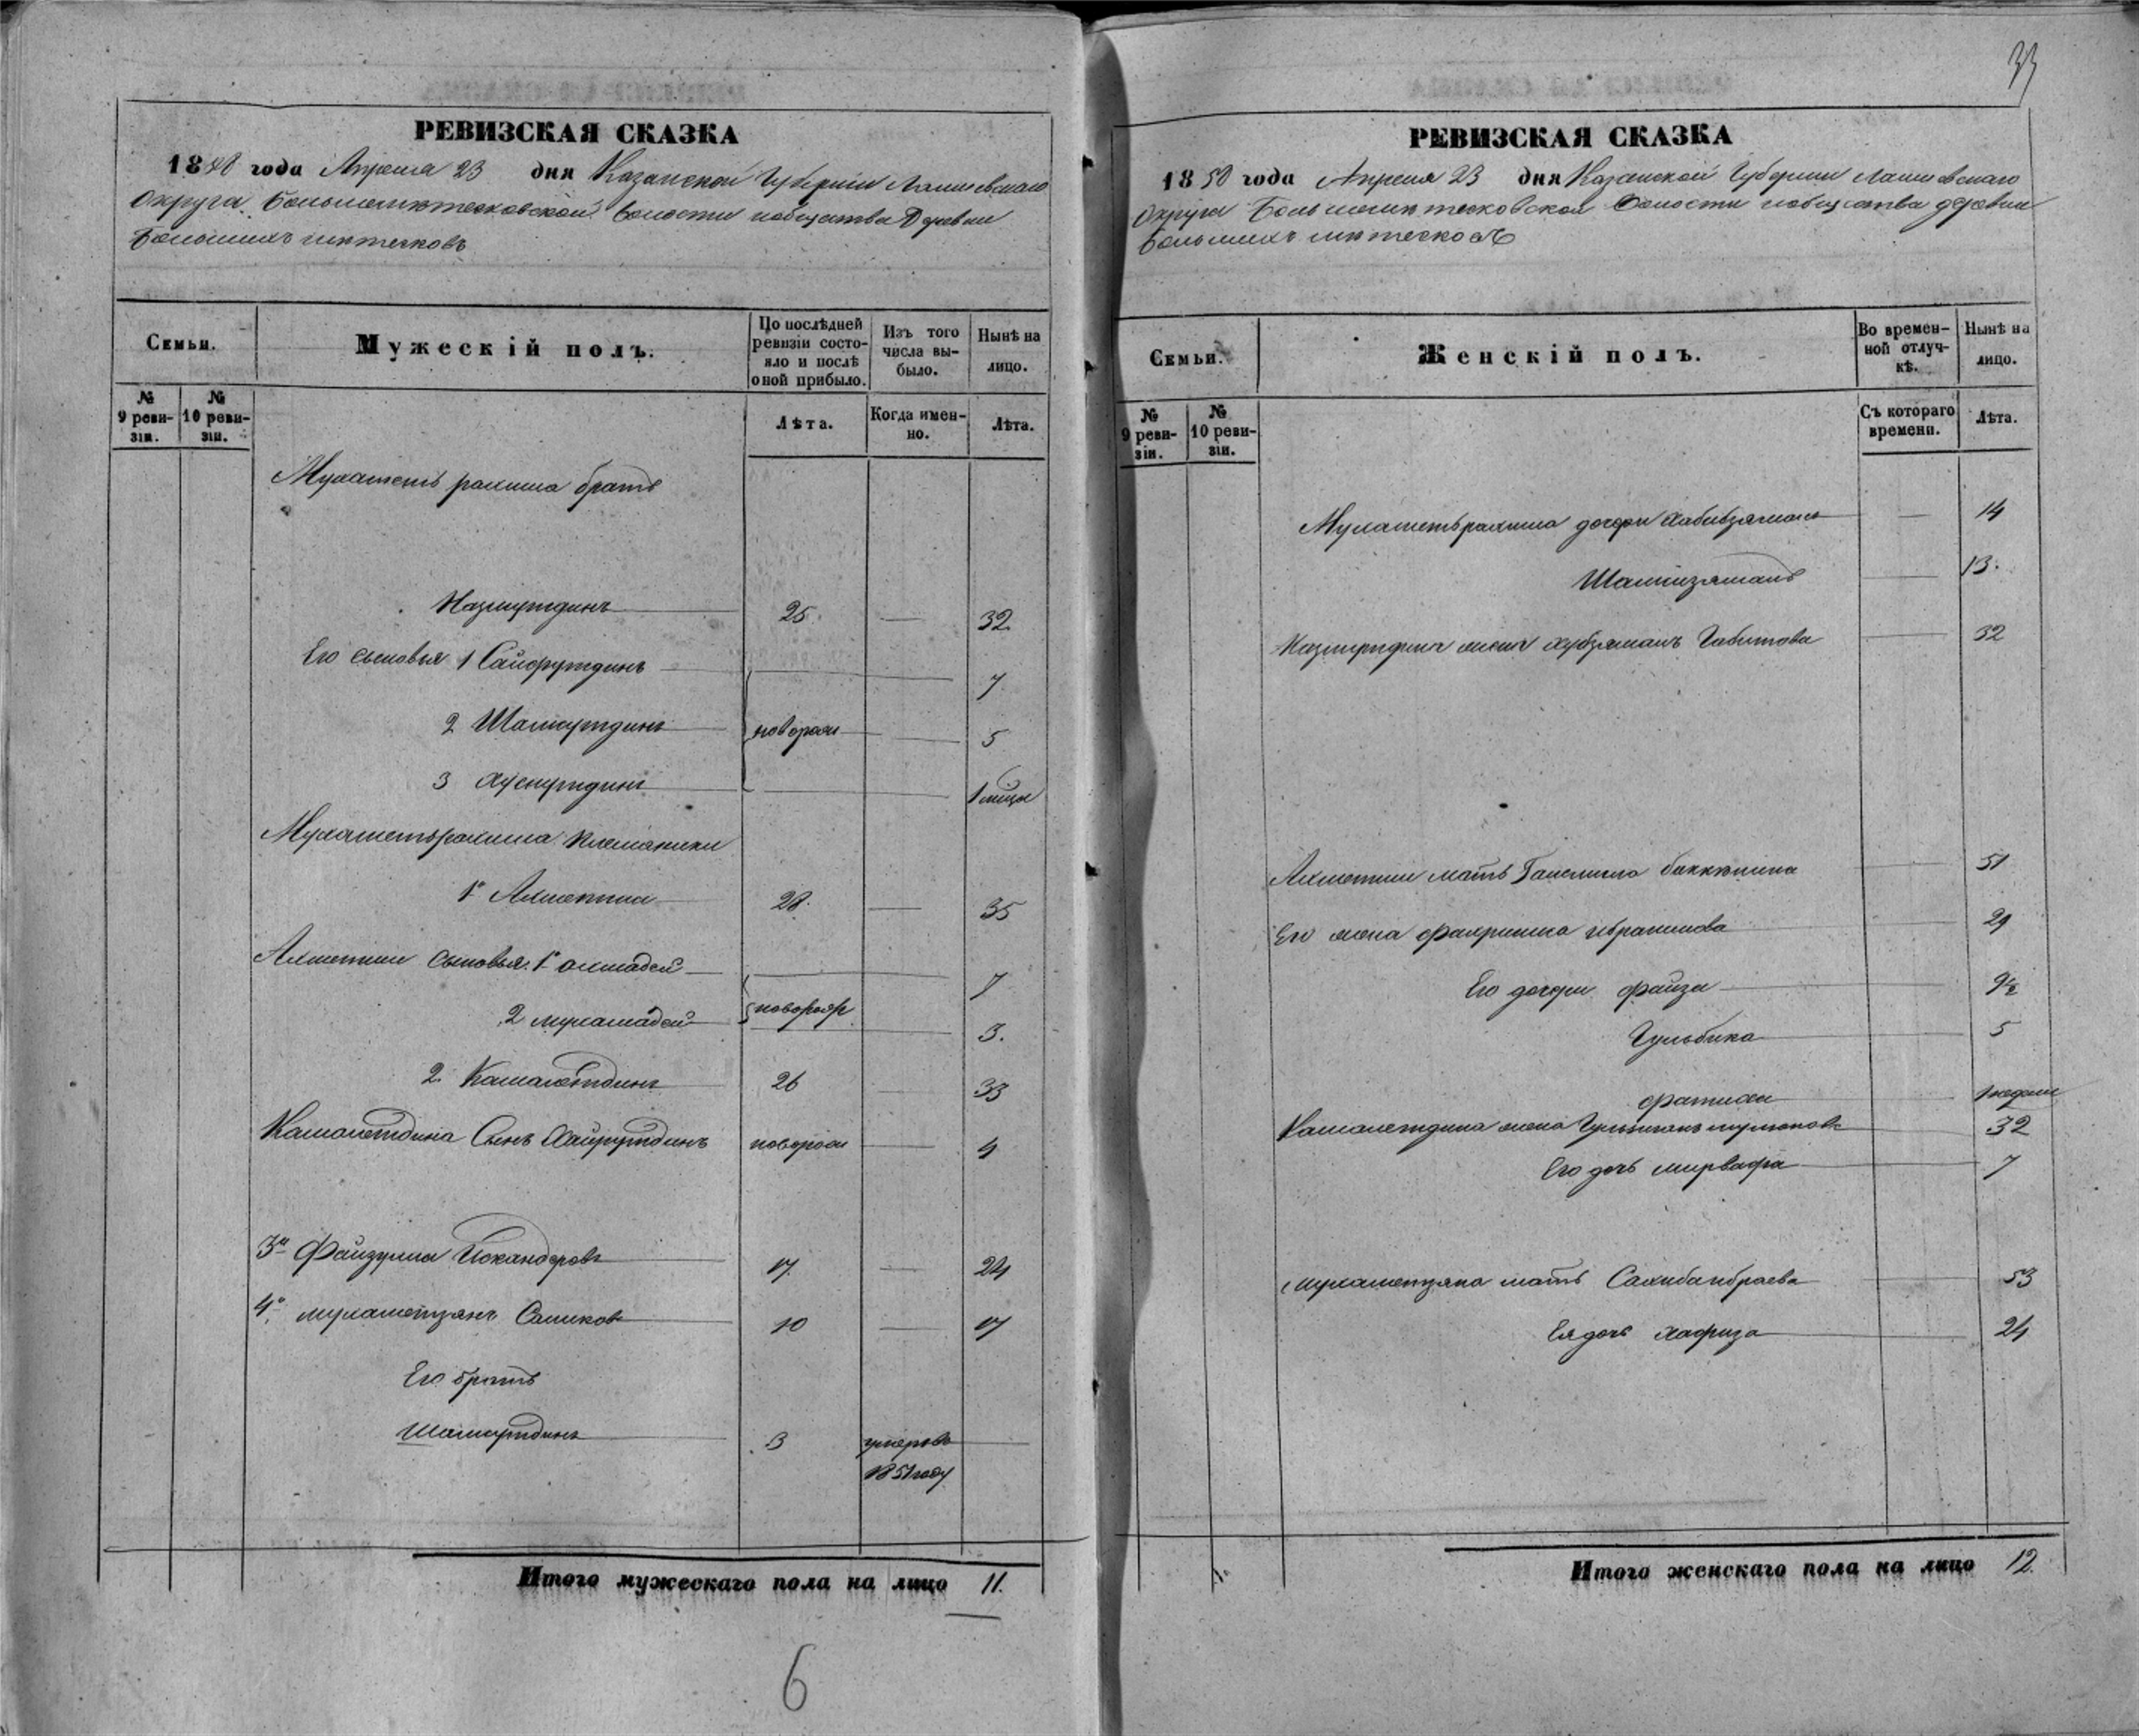 33
РЕВИЗСКАЯ СКАЗКА
1858 года Апреля 23 дня Казанской Губернии Лаишевскаго
Округа Большеметесковской волости и общества Деревни
Большихъ метесковъ
Семьи.
Мужескій полъ.
По послѣдней ревизіи состояло и послѣ оной прибыло.
Изъ того числа выбыло.
Нынѣ на лицо.
№ 9 ревизіи.
№ 10 ревизіи.
Лѣта.
Когда именно.
Лѣта.
Мухаметь рахима братъ
Назмутдинъ 25. — 32
Его сыновья 1 Сайфутдинъ — 7
2 Шамсутдинъ новорож — 5
3 Хуснутдинъ — 1 месц
Мухаметьрахима племяники
1й Ахметша 28. — 35
Ахметши сыновья 1й ахмадей — 7
2 мухамадей новорож 3.
2. Камалетдинъ 26 — 33
Камалетдина Сынъ Хайрутдинъ новорож — 4
3й Файзулла Искандеровъ 17. — 24
4й мухаметзянъ Салиховъ 10 — 17
Его братъ
Шамсутдинъ 3 умеръ въ —
1851 году
Итого мужескаго пола на лицо 11.
6
РЕВИЗСКАЯ СКАЗКА
1858 года Апреля 23 дня Казанской Губернии Лаишевскаго
Округа Большеметесковской волости и общества деревни
Большихъ метесковъ
Семьи.
Женскій полъ.
Во временной отлучкѣ.
Нынѣ на лицо.
№ 9 ревизіи.
№ 10 ревизіи.
Съ котораго времени.
Лѣта.
Мухаметьрахима дочери Хабибзямалъ — 14
Шамсизямалъ — 13.
Назмутдина жена хубзямалъ Габитова — 32
Ахметши мать — 51
Его жена ибрагимова — 29
Его дочери файза — 9½
Гульбика — 5
фатиха — 1 недели
Камалетдина жена — 32
Его дочь — 7
мухаметзяна мать Сахиба ибраева — 53
Ея дочь хафиза — 24
Итого женскаго пола на лицо 12.